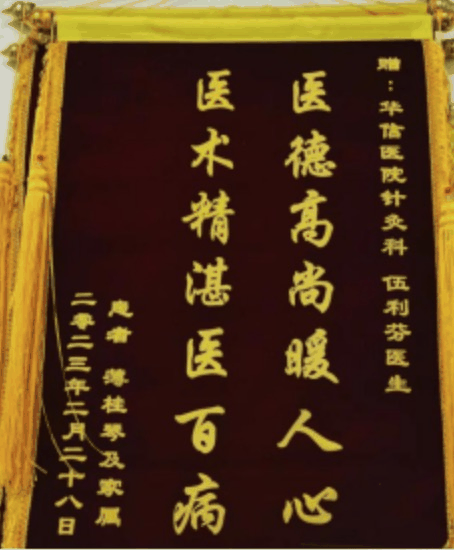 赠：华信医院针灸科 伍利芬医生
医德高尚暖人心
医术精湛医百病
患者 薄桂琴及家属
二零二三年二月二十八日